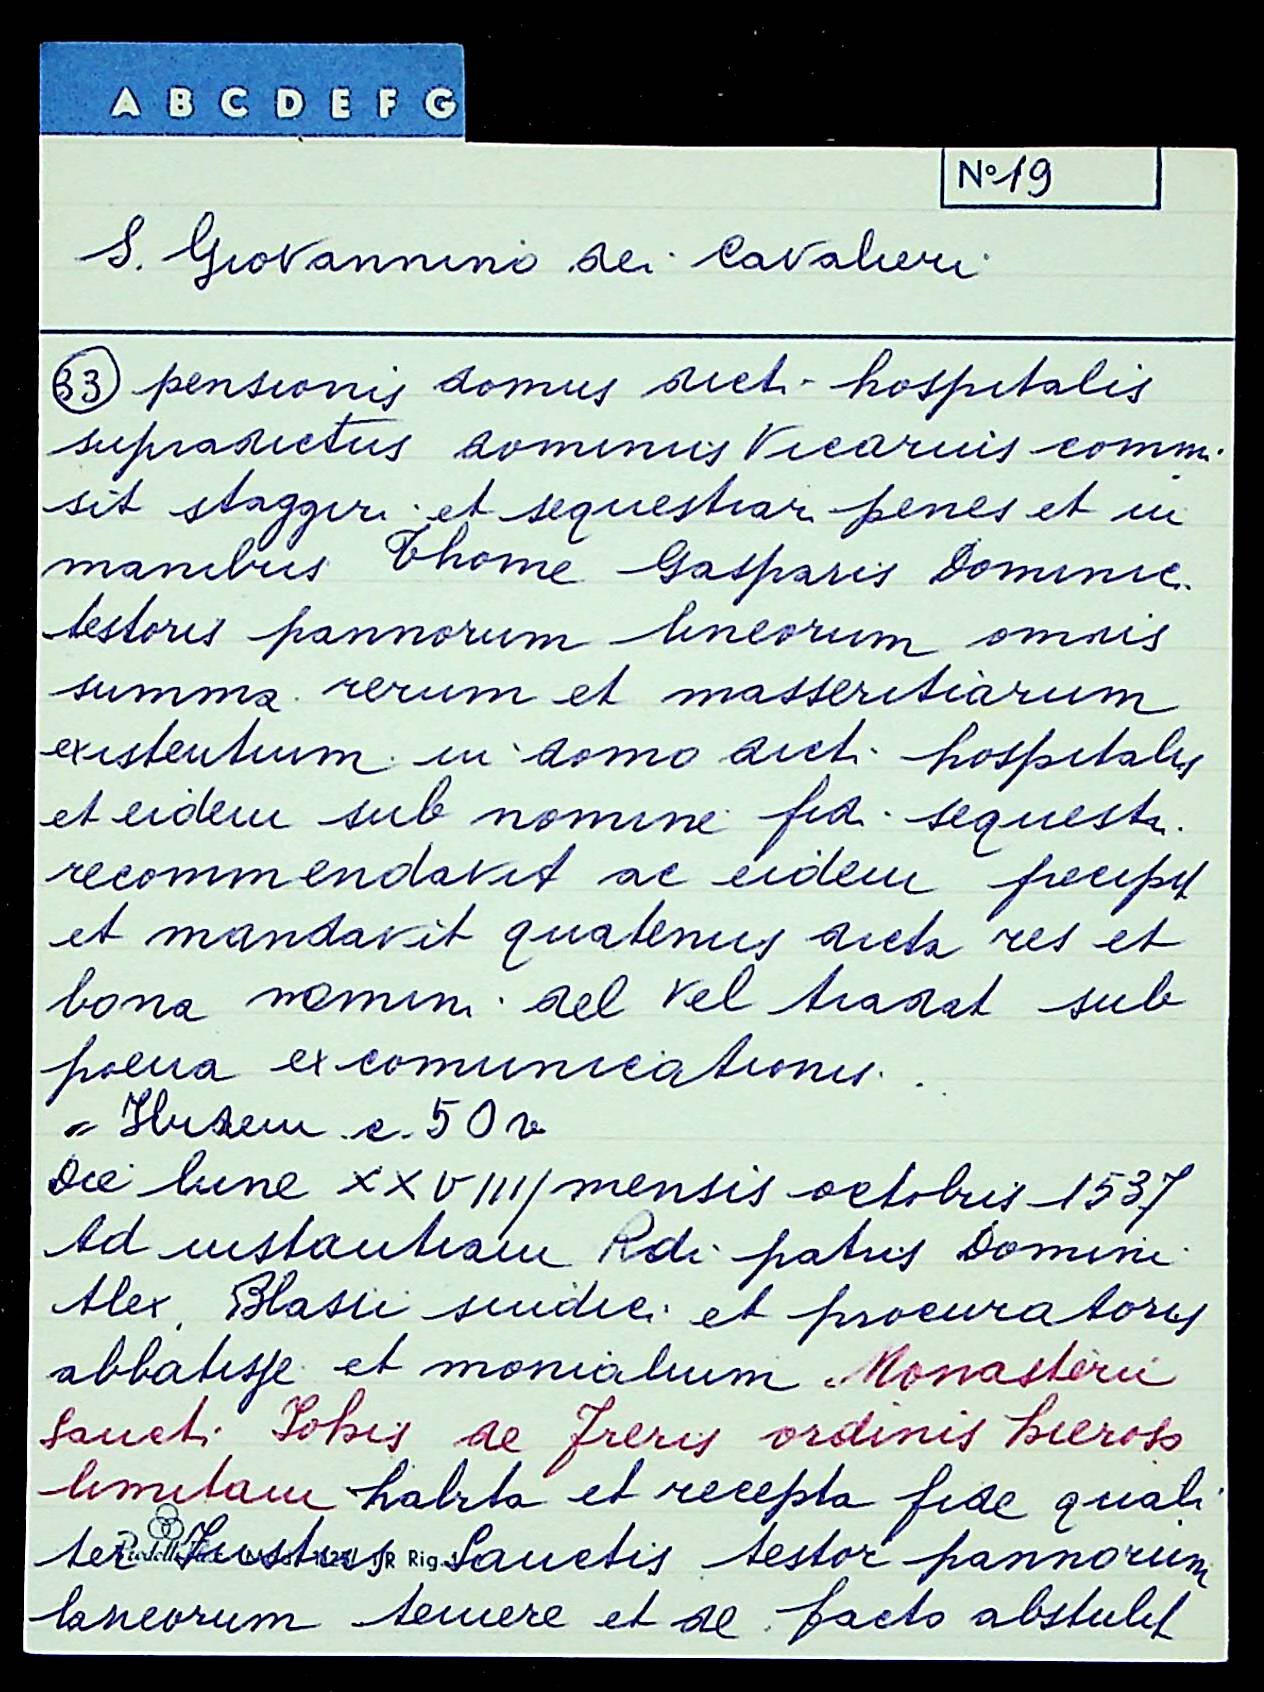 A B C D E F G
N° 19
S. Giovannino dei Cavalieri
33 pensionis domus dicti hospitalis
supradictus dominus Vicarius commi
sit staggiri et sequestrari penes et in
manibus Thome Gasparis Dominici
testoris pannorum lineorum omnis
summa rerum et masseritiarum
existentium in domo dicti hospitalis
et eidem sub nomine fidi sequestri
recommendavit ac eidem precipit
et mandavit quatenus dicta res et
bona nomini del vel tradat sub
poena excomunicationis.
" Ibidem c. 50 v
Die lune XXVIII mensis octobris 1537
Ad instantiam Rdi patris Domini
Alex. Blasii sindici et procuratoris
abbatisse et monialium Monasterii
Sancti Johis de Freris ordinis hieroso
limitani habita et recepta fide quali
ter Justus Sanctis testor pannorum
laneorum temere et de facto abstulit